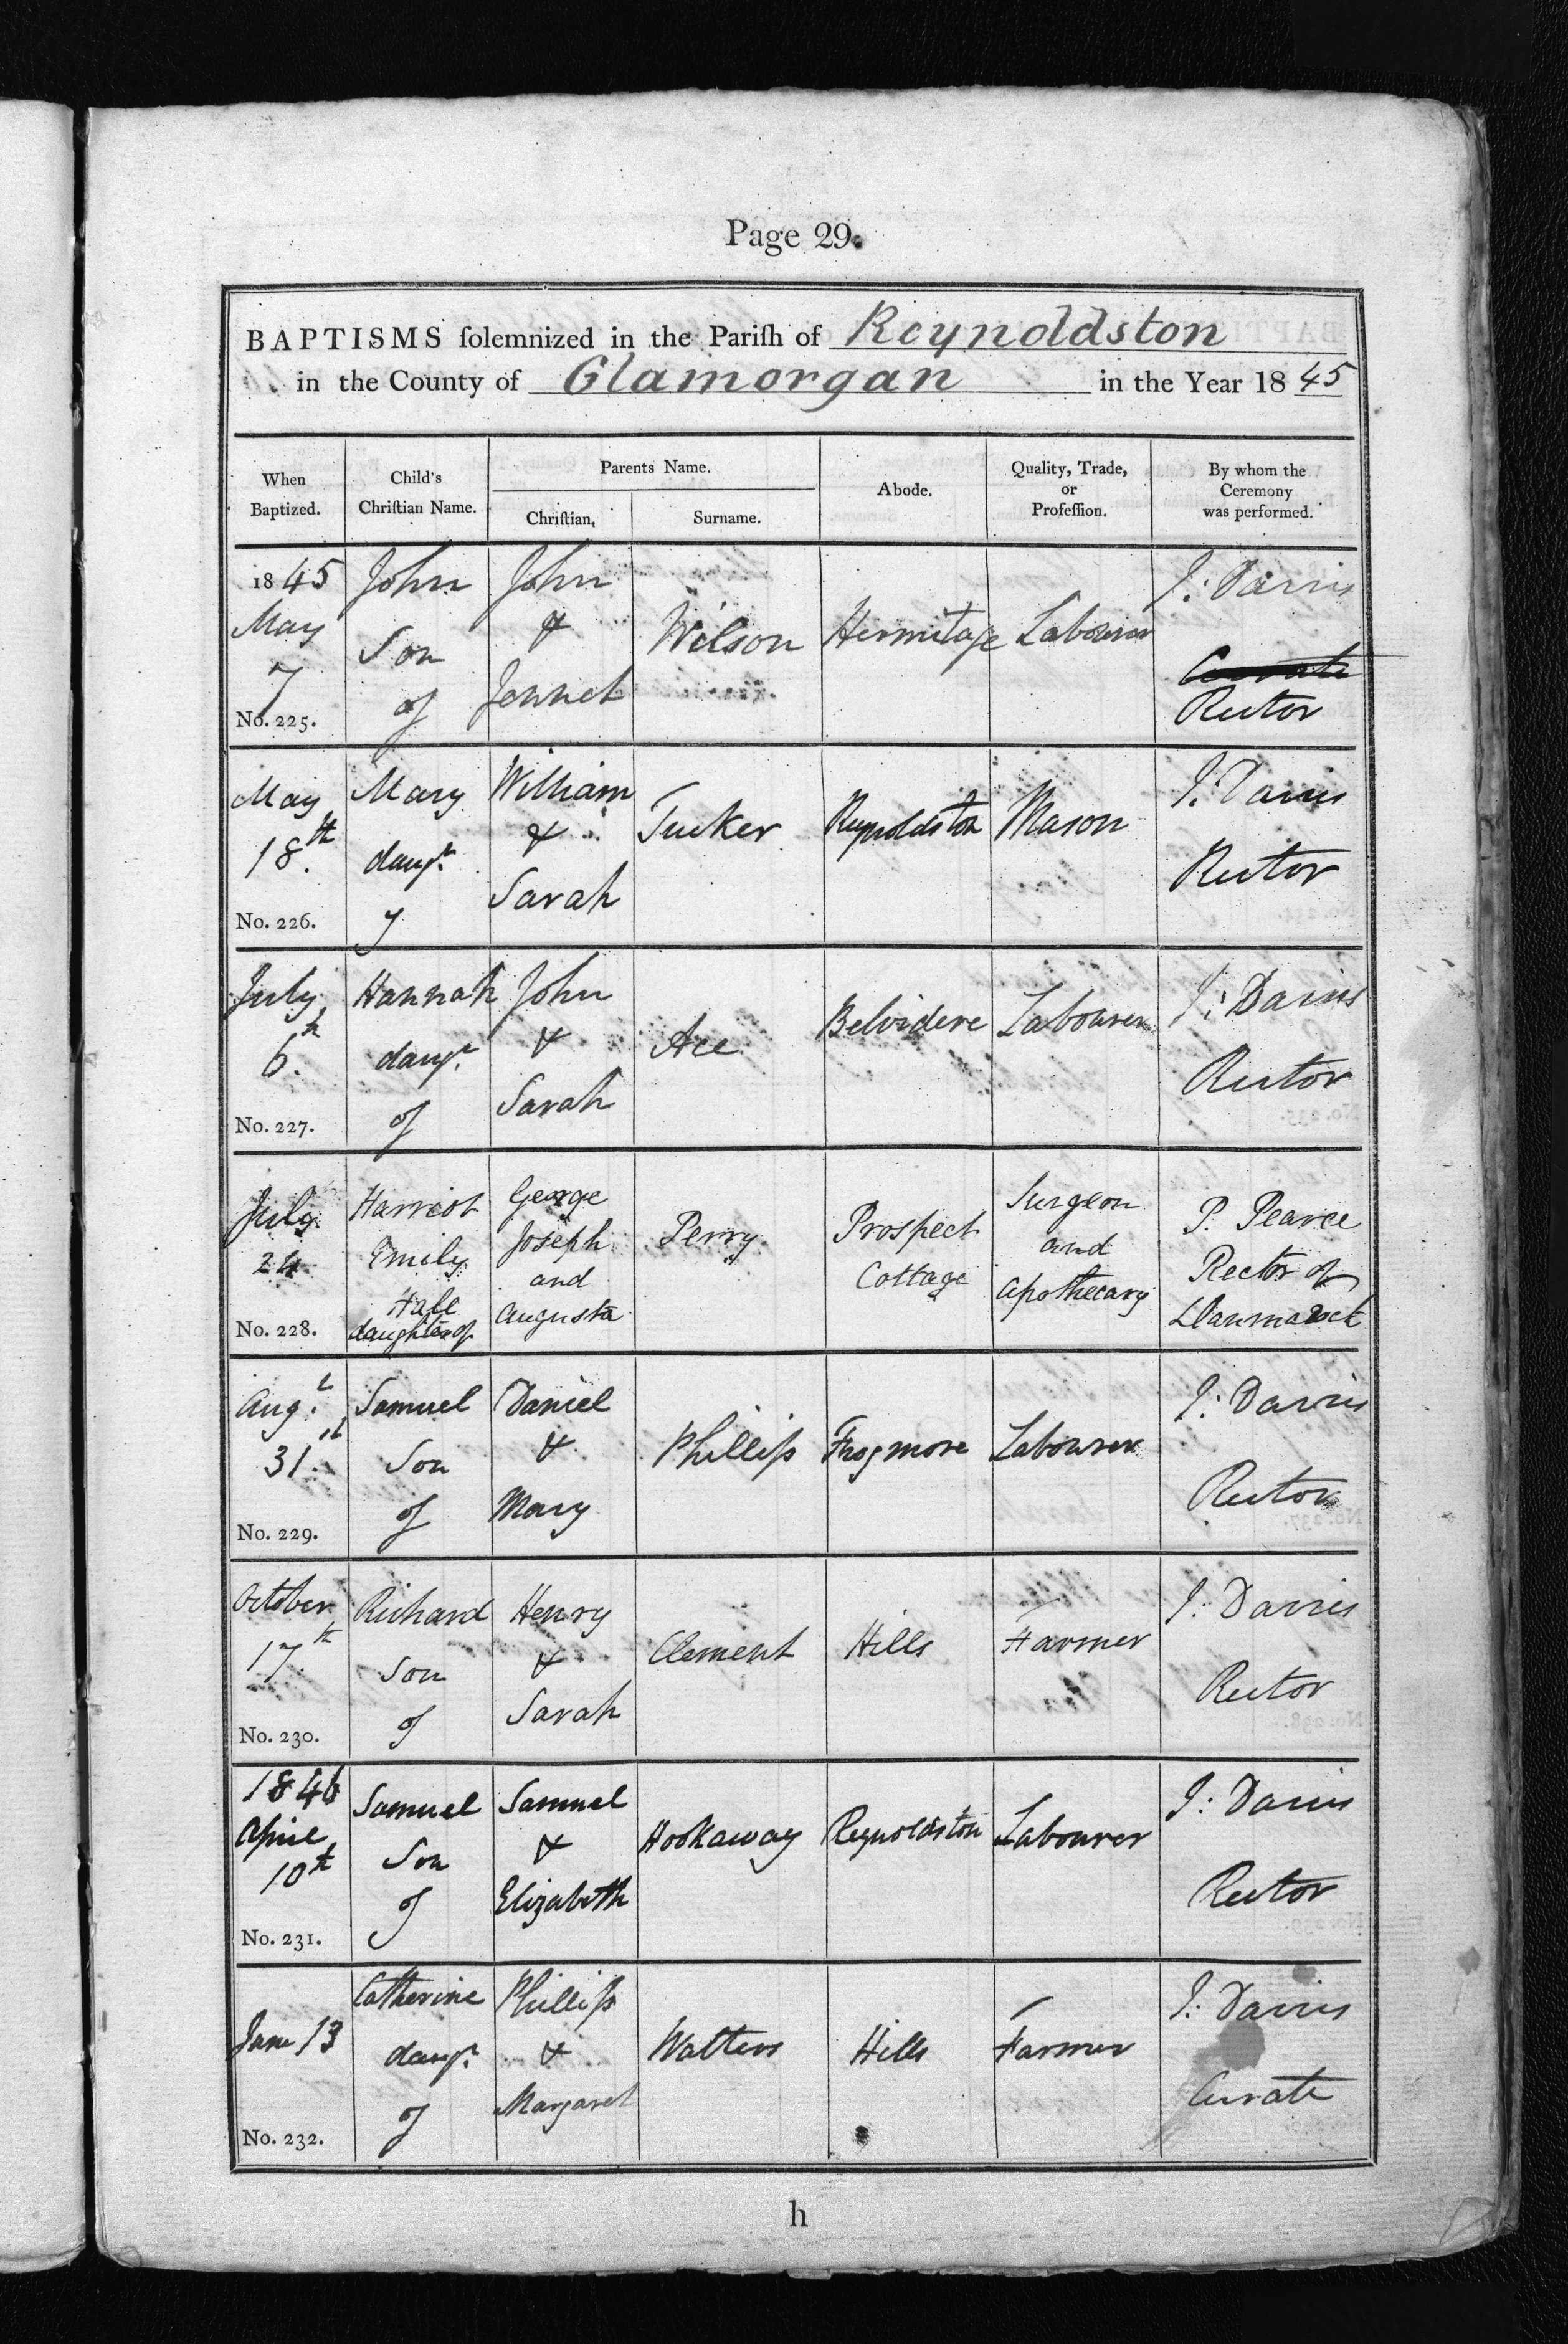 Page 29.
BAPTISMS ſolemnized in the Pariſh of Reynoldston
in the County of Glamorgan in the Year 18 45
When Baptized.
Child's Chriſtian Name.
Parents Name.
Chriſtian,
Surname.
Abode.
Quality, Trade, or Profeſſion.
By whom the Ceremony was performed.
1845
May
7
No. 225.
John
Son
of
John
&
Jennet
Wilson
Hermitage
Labourer
J: Davies
Curate
Rector
May
18th.
No. 226.
Mary
daugr.
of
William
&
Sarah
Tucker
Reynoldston
Mason
J: Davies
Rector
July
6th.
No. 227.
Hannah
daugr.
of
John
&
Sarah
Ace
Belvidere
Labourer
J: Davies
Rector
July
24
No. 228.
Harriot
Emily
Hall
daughter of
George
Joseph
and
Augusta
Perry
Prospect
Cottage
Surgeon
and
Apothecary
P. Pearce
Rector of
Llanmadock
Augt.
31st.
No. 229.
Samuel
Son
of
Daniel
&
Mary
Phillips
Frogmore
Labourer
J: Davies
Rector
October
17th.
No. 230.
Richard
Son
of
Henry
&
Sarah
Clement
Hills
Farmer
J: Davies
Rector
1846
April
10th
No. 231.
Samuel
Son
of
Samuel
&
Elizabeth
Hookaway
Reynoldston
Labourer
J: Davies
Rector
June 13
No. 232.
Catherine
daugr.
of
Phillip
&
Margaret
Walters
Hills
Farmer
J: Davies
Curate
h